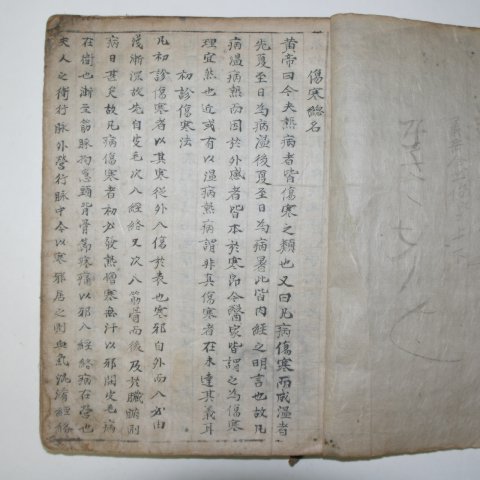 傷寒總名
黃帝曰今夫熱病者皆傷寒之類也又曰凡病傷寒而成溫者
先夏至日為病溫後夏至日為病暑此皆內經之明言也故凡
病溫病熱而因於外感者皆本於寒即今醫家皆謂之為傷寒
理宜然也近或有以溫病熱病謂非真傷寒者在未達其義耳
初診傷寒法
凡初診傷寒者以其寒從外入傷於表也寒邪自外而入必由
淺漸深故先自皮毛次入經絡又次入筋骨而後及於臟腑則
病日甚矣故凡病傷寒者初必發熱憎寒無汗以邪閉皮毛病
在衛也漸至筋脉拘急頭背骨節疼痛以邪入經絡病在營也
夫人之衛行脉外營行脉中今以寒邪居之則血氣混淆經絡